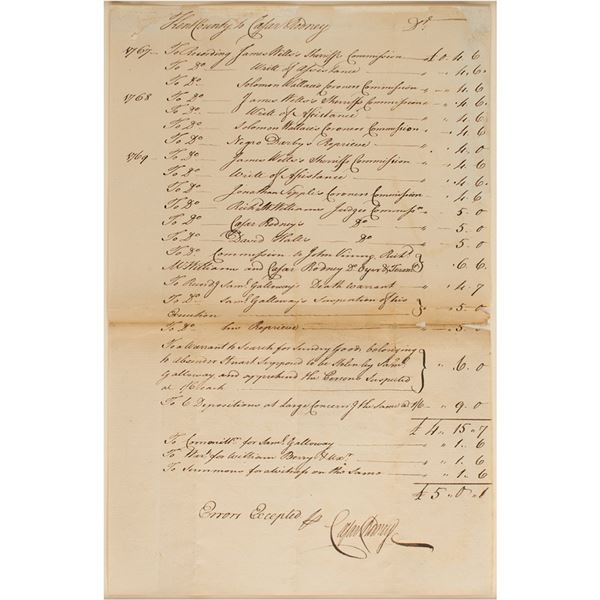 Kent County to Cæsar Rodney Dr.
1767 To Recording James Wells's Sheriffs Commission £0.4.6
To Do Writt of Assistance " 4.6
To Do Solomon Wallace's Coroners Commission " 4.6
1768 To Do James Wells's Sheriffs Commission " 4.6
To Do Writt of Assistance " 4.6
To Do Solomon Wallace's Coroners Commission " 4.6
To Do Negro Darby's Reprieve " 4.0
1769 To Do James Wells's Sheriffs Commission " 4.6
To Do Writt of Assistance " 4.6
To Do Jonathan Sipple's Coroners Commission " 4.6
To Do Richd McWilliams Judges Commissn " 5.0
To Do Cæsar Rodney's Do " 5.0
To Do David Hall's Do " 5.0
To Do Commission to John Vining Richd
McWilliam and Cæsar Rodney Do Oyer & Terminr " 6.6
To Recordg Saml Galloway's Death Warrant " 4.7
To Do Saml Galloway's Suspention of his
Execution " 5.0
To Do his Reprieve " 5.
To a Warrant to Search for Sundry Goods belonging
to Stuart Supposed to be Stolen by Saml
Galloway and apprehend the Persons Suspected
at each " 6.0
To 6 Depositions at large Concerng the Same at 1/6 " 9.0
£4.15.7
To Committt for Saml Galloway " 1.6
To for William Berry & Uxr " 1.6
To Summons for a witness on the Same " 1.6
£5.0.1
Errors Excepted
Cæsar Rodney